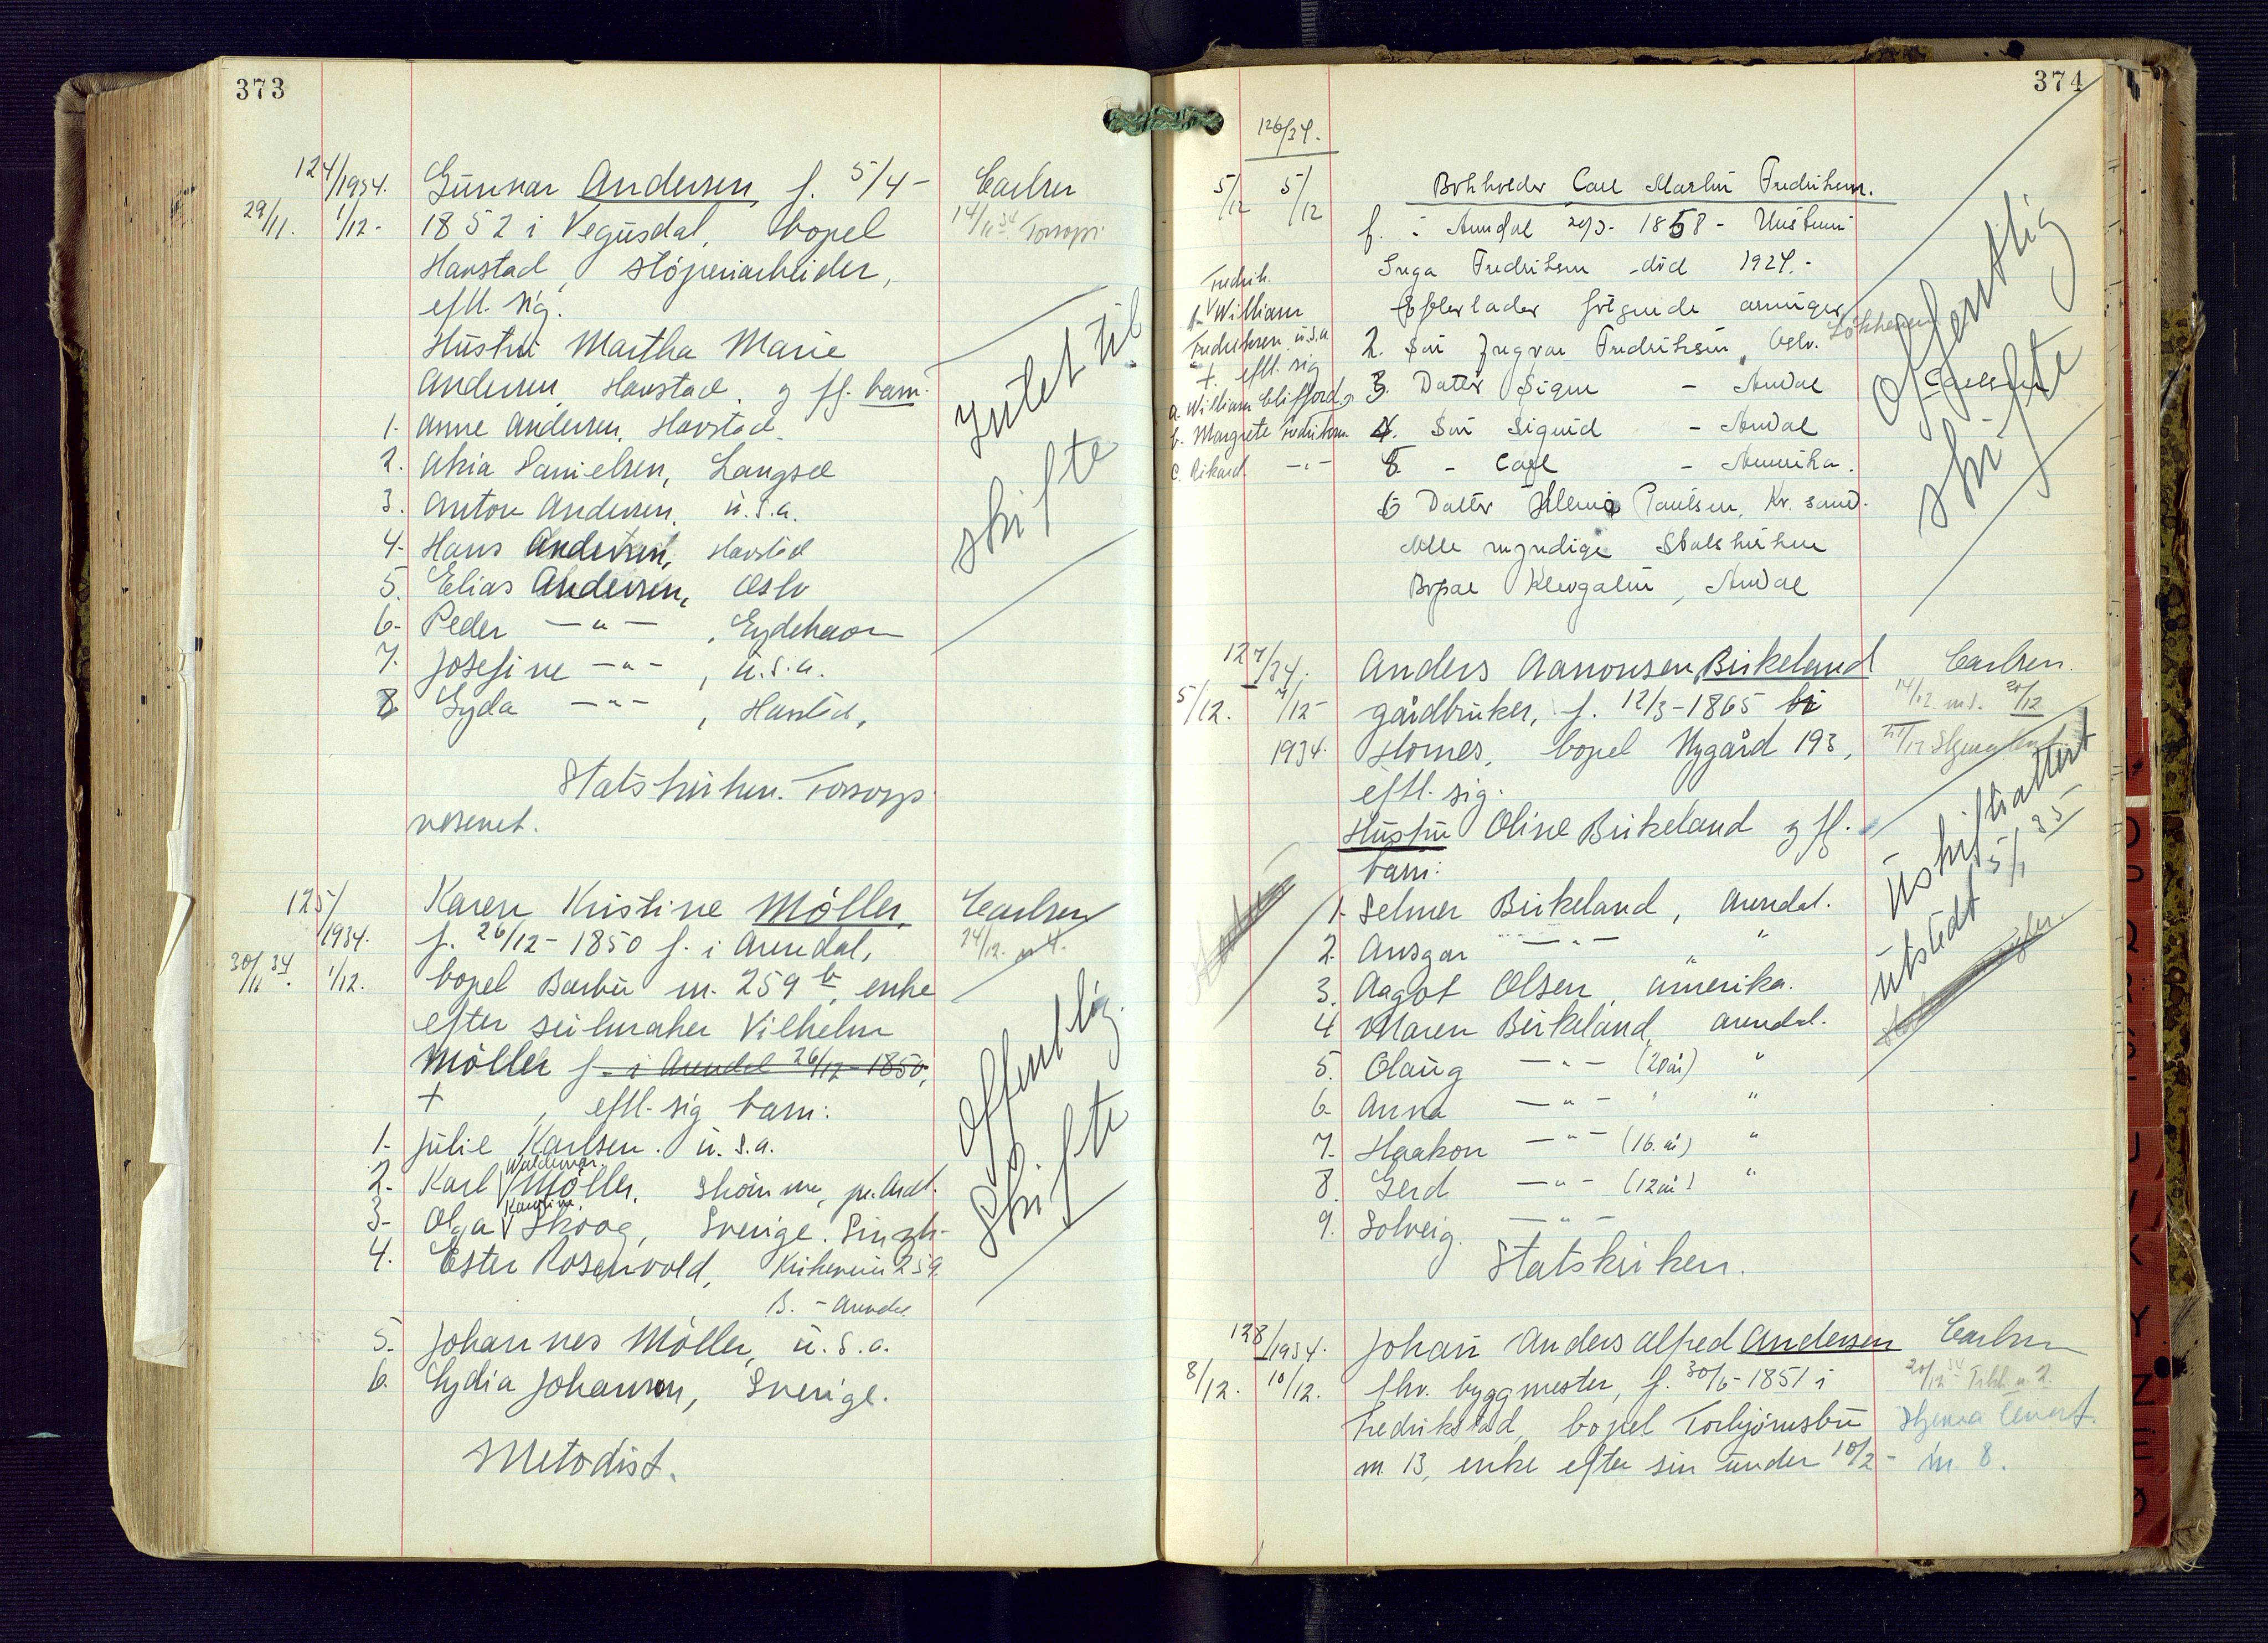 373
124/1934. Gunnar Andersen, f. 5/4- Carlsen
29/11. 1/12- 1852 i Vegusdal, bopel 14/12 34 Forsorgs
Havstad, støperiarbeider,
eftl. sig.
Hustru Martha Marie
Andersen, Havstad, og ff. barn:
1. Anne Andersen, Havstad.
2. Akia Danielsen, Langsæ
3. Anton Andersen, U.S.A.
4. Hans Andersen, Havstad
5. Elias Andersen, Oslo
6. Peder —"— , Eydehavn
7. Josefine —"— , U.S.A.
8 Gyda —"— , Havstad,
Intet til
skifte
Statskirken. Forsorgs
vesenet.
125/1934. Karen Kristine Møller, Carlsen
f. 26/12-1850 f. i Arendal, 24/12.
30/11 34. 1/12. bopel Barbu m. 259 b, enke
efter seilmaker Vilhelm
Møller f. i Arendal 26/12-1850,
+ , eftl. sig barn:
1. Julie Karlsen. U.S.A.
2. Karl Waldemar Møller, pr. Ardl.
3. Olga Karoline Skoog, Sverige.
4. Ester Rosenvold, 259
B. - Arendal
5. Johannes Møller, U.S.A.
6. Lydia Johansen, Sverige.
Offentlig
skifte
Metodist.
374
126/34.
5/12 5/12 Bokholder Carl Martin Fredriksen.
f. i Arendal 20/3- 1858 - Hustru
Inga Fredriksen død 1924.-
Efterlader følgende arvinger
Fredrik.
1. William
Fredriksen U.S.A.
+. eftl. sig
a. William Clifford og
b. Margrete Fredriksen
c. Rikard —"—
2. Søn Ingvar Fredriksen, Oslo.
3. Datter Signe - Arndal
4. Søn Sigurd - Arndal
5. - Carl - Amerika.
6 Datter Paulsen, Kr. sand.
Alle myndige Statskirken
Bopæl Klevgaten, Arndal
Carlsen
Offentlig
skifte
127/34. Anders Aanonsen Birkeland Carlsen.
5/12. 7/12- gårdbruker, f. 12/3-1865 i 14/12. 20/12
1934. Hornes, bopel Nygård 193,
eftl. sig.
Hustru Oline Birkeland og ff.
barn:
1. Selmer Birkeland, Arendal.
2. Ansgar —"— "
3. Aagot Olsen, Amerika.
4 Maren Birkeland, Arendal.
5. Olaug —"— (20 år) "
6. Anna —"— "
7. Haakon —"— (16. år) "
8. Gerd —"— (12 år) "
9. Solveig. —"—
Uskifteattest
utstedt 5/1 35
Statskirken.
128/1934. Johan Anders Alfred Andersen Carlsen
8/12. 10/12. fhv. byggmester, f. 30/6-1851 i
Fredrikstad, bopel Torbjørnsbu Skjema
m. 13, enke efter sin under 10/2- m. 8.